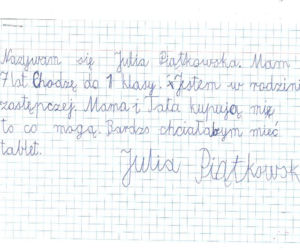 Nazywam się Julia Piątkowska. Mam
7 lat Chodzę do 1 klasy. Jestem w rodzini
zastępczej. Mama i Tata kupują mi
to co mogą. Bardzo chciałabym mieć
tablet.
Julia Piątkowsk